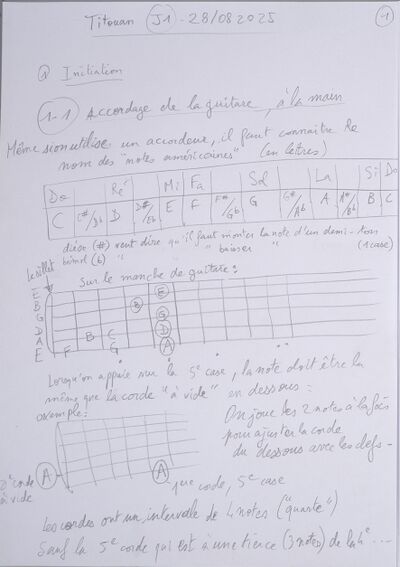 Titouan J1 - 28/08 2025 -1
1 Initiation
1-1 Accordage de la guitare, à la main
Même si on utilise un accordeur, il faut connaître le
nom des "notes américaines" (en lettres)
Do Ré Mi Fa Sol La Si Do
C C#/Db D D#/Eb E F F#/Gb G G#/Ab A A#/Bb B C
dièse (#) veut dire qu'il faut monter la note d'un demi-ton
bémol (b) " " " baisser " (1 case)
Le sillet Sur le manche de guitare :
E E
B B
G G
D B C D
A G A
E F
Lorsqu'on appuie sur la 5e case, la note doit être la
même que la corde "à vide" en dessous :
exemple : On joue les 2 notes à la fois
pour ajuster la corde
du dessous avec les clefs -
2e corde à vide A A
que code, 5e case
Les cordes ont un intervalle de 4 notes ("quarte")
Sauf la 5e corde qui est à une tierce (3 notes) de la 4e ...